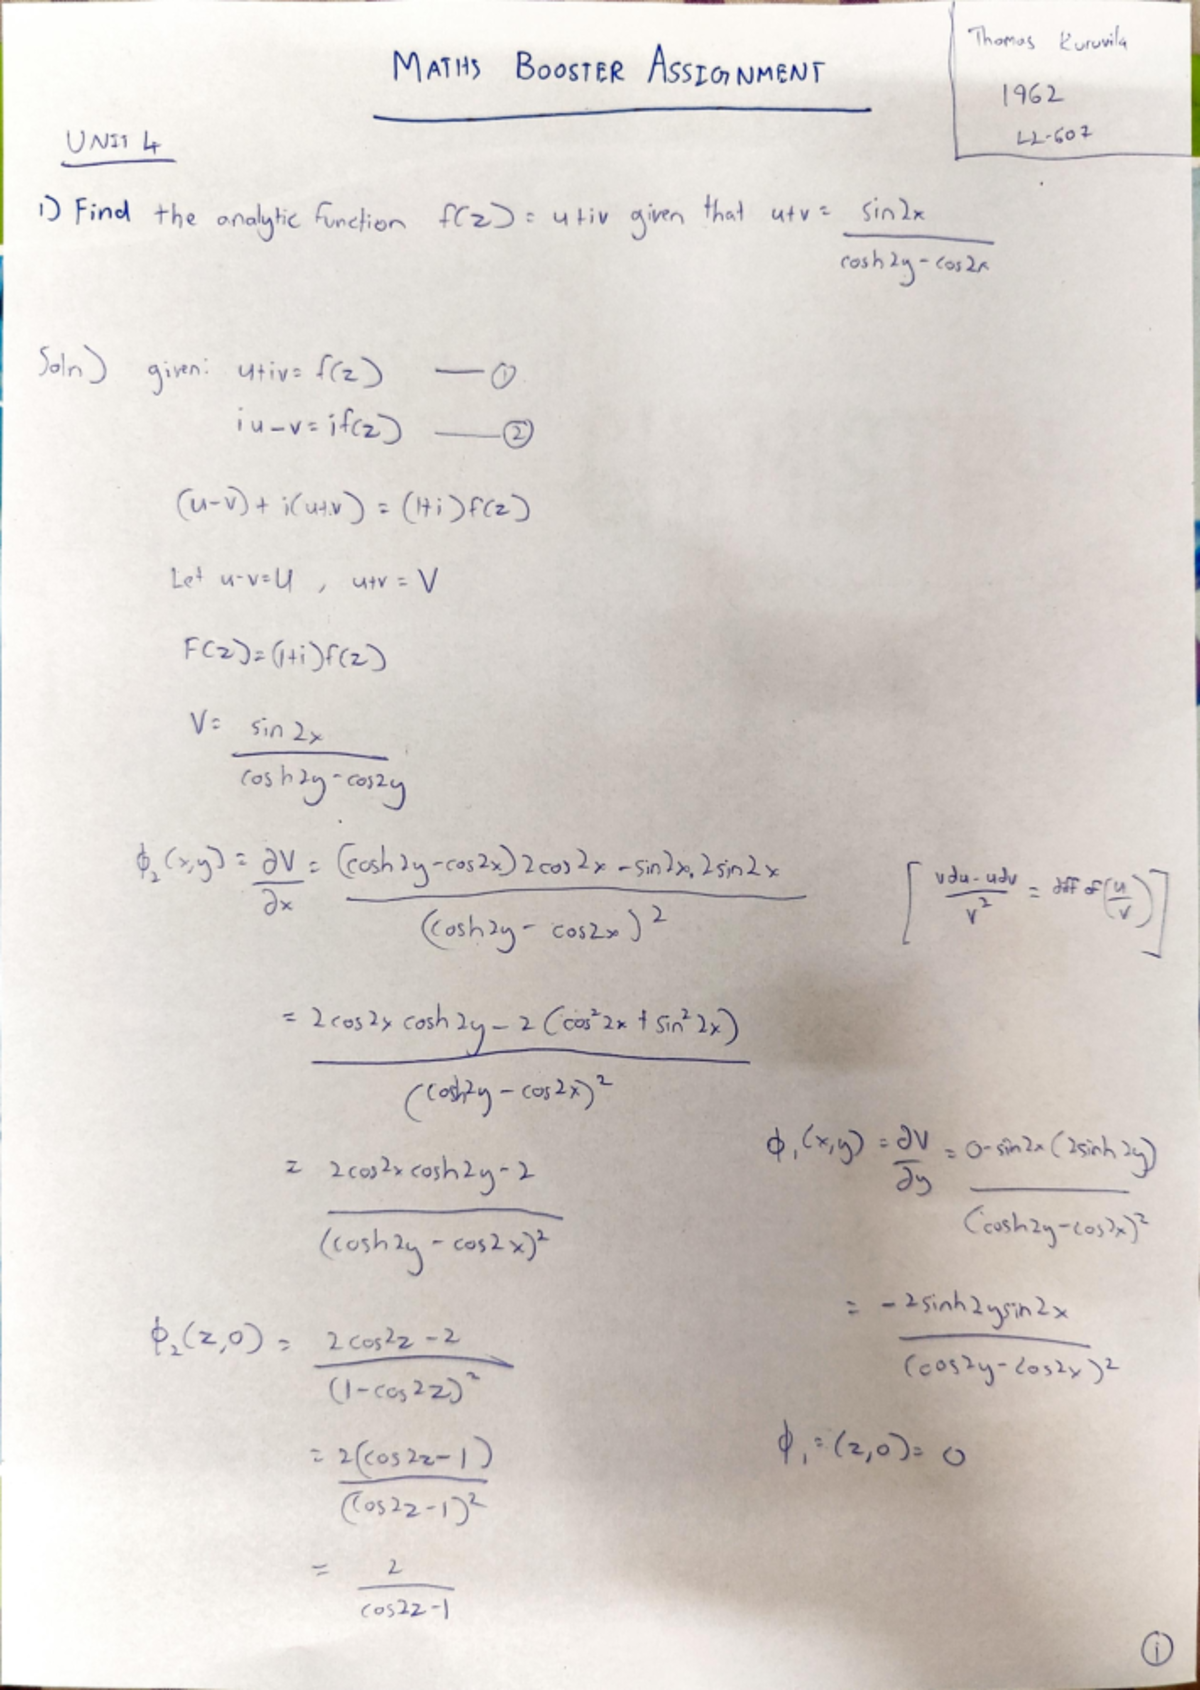 Thomas Kuruvila
1962
LL-607
MATHS BOOSTER ASSIGNMENT
UNIT 4
1) Find the analytic function f(z) = u+iv given that u+v = sin2x / cosh2y-cos2x
Soln) given: u+iv = f(z) — ①
iu-v = if(z) — ②
(u-v) + i(u+v) = (1+i)f(z)
Let u-v=U , u+v = V
F(z) = (1+i)f(z)
V = sin 2x / cosh2y-cos2y
ϕ₂(x,y) = ∂V/∂x = (cosh2y-cos2x)2cos2x - sin2x.2sin2x / (cosh2y - cos2x)²
[vdu-udv / v² = diff of (u/v)]
= 2cos2x cosh2y - 2(cos²2x + sin²2x) / (cosh2y - cos2x)²
= 2cos2x cosh2y-2 / (cosh2y - cos2x)²
ϕ₂(z,0) = 2cos2z-2 / (1-cos2z)²
= 2(cos2z-1) / (cos2z-1)²
= 2 / cos2z-1
ϕ₁(x,y) = ∂V/∂y = 0-sin2x(2sinh2y) / (cosh2y-cos2x)²
= -2sinh2ysin2x / (cos2y-cos2x)²
ϕ₁=(z,0)= 0
①